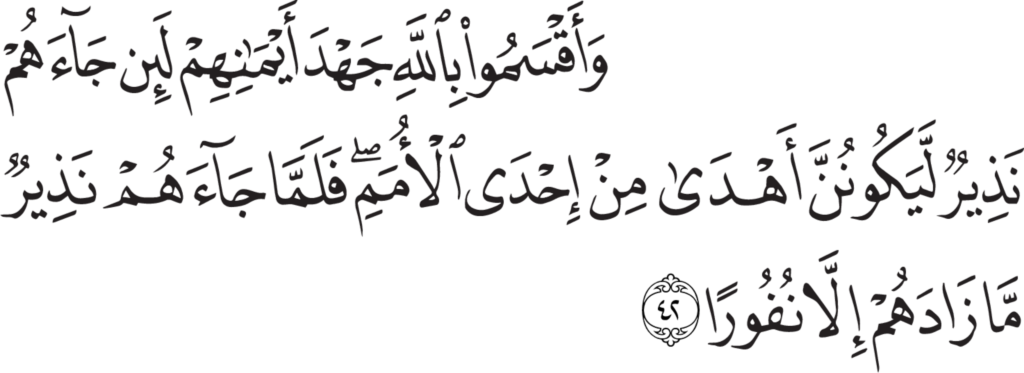 وَأَقْسَمُوا۟ بِٱللَّهِ جَهْدَ أَيْمَـٰنِهِمْ لَئِن جَآءَهُمْ
نَذِيرٌ لَّيَكُونُنَّ أَهْدَىٰ مِنْ إِحْدَى ٱلْأُمَمِ ۖ فَلَمَّا جَآءَهُمْ نَذِيرٌ
مَّا زَادَهُمْ إِلَّا نُفُورًا ٤٢